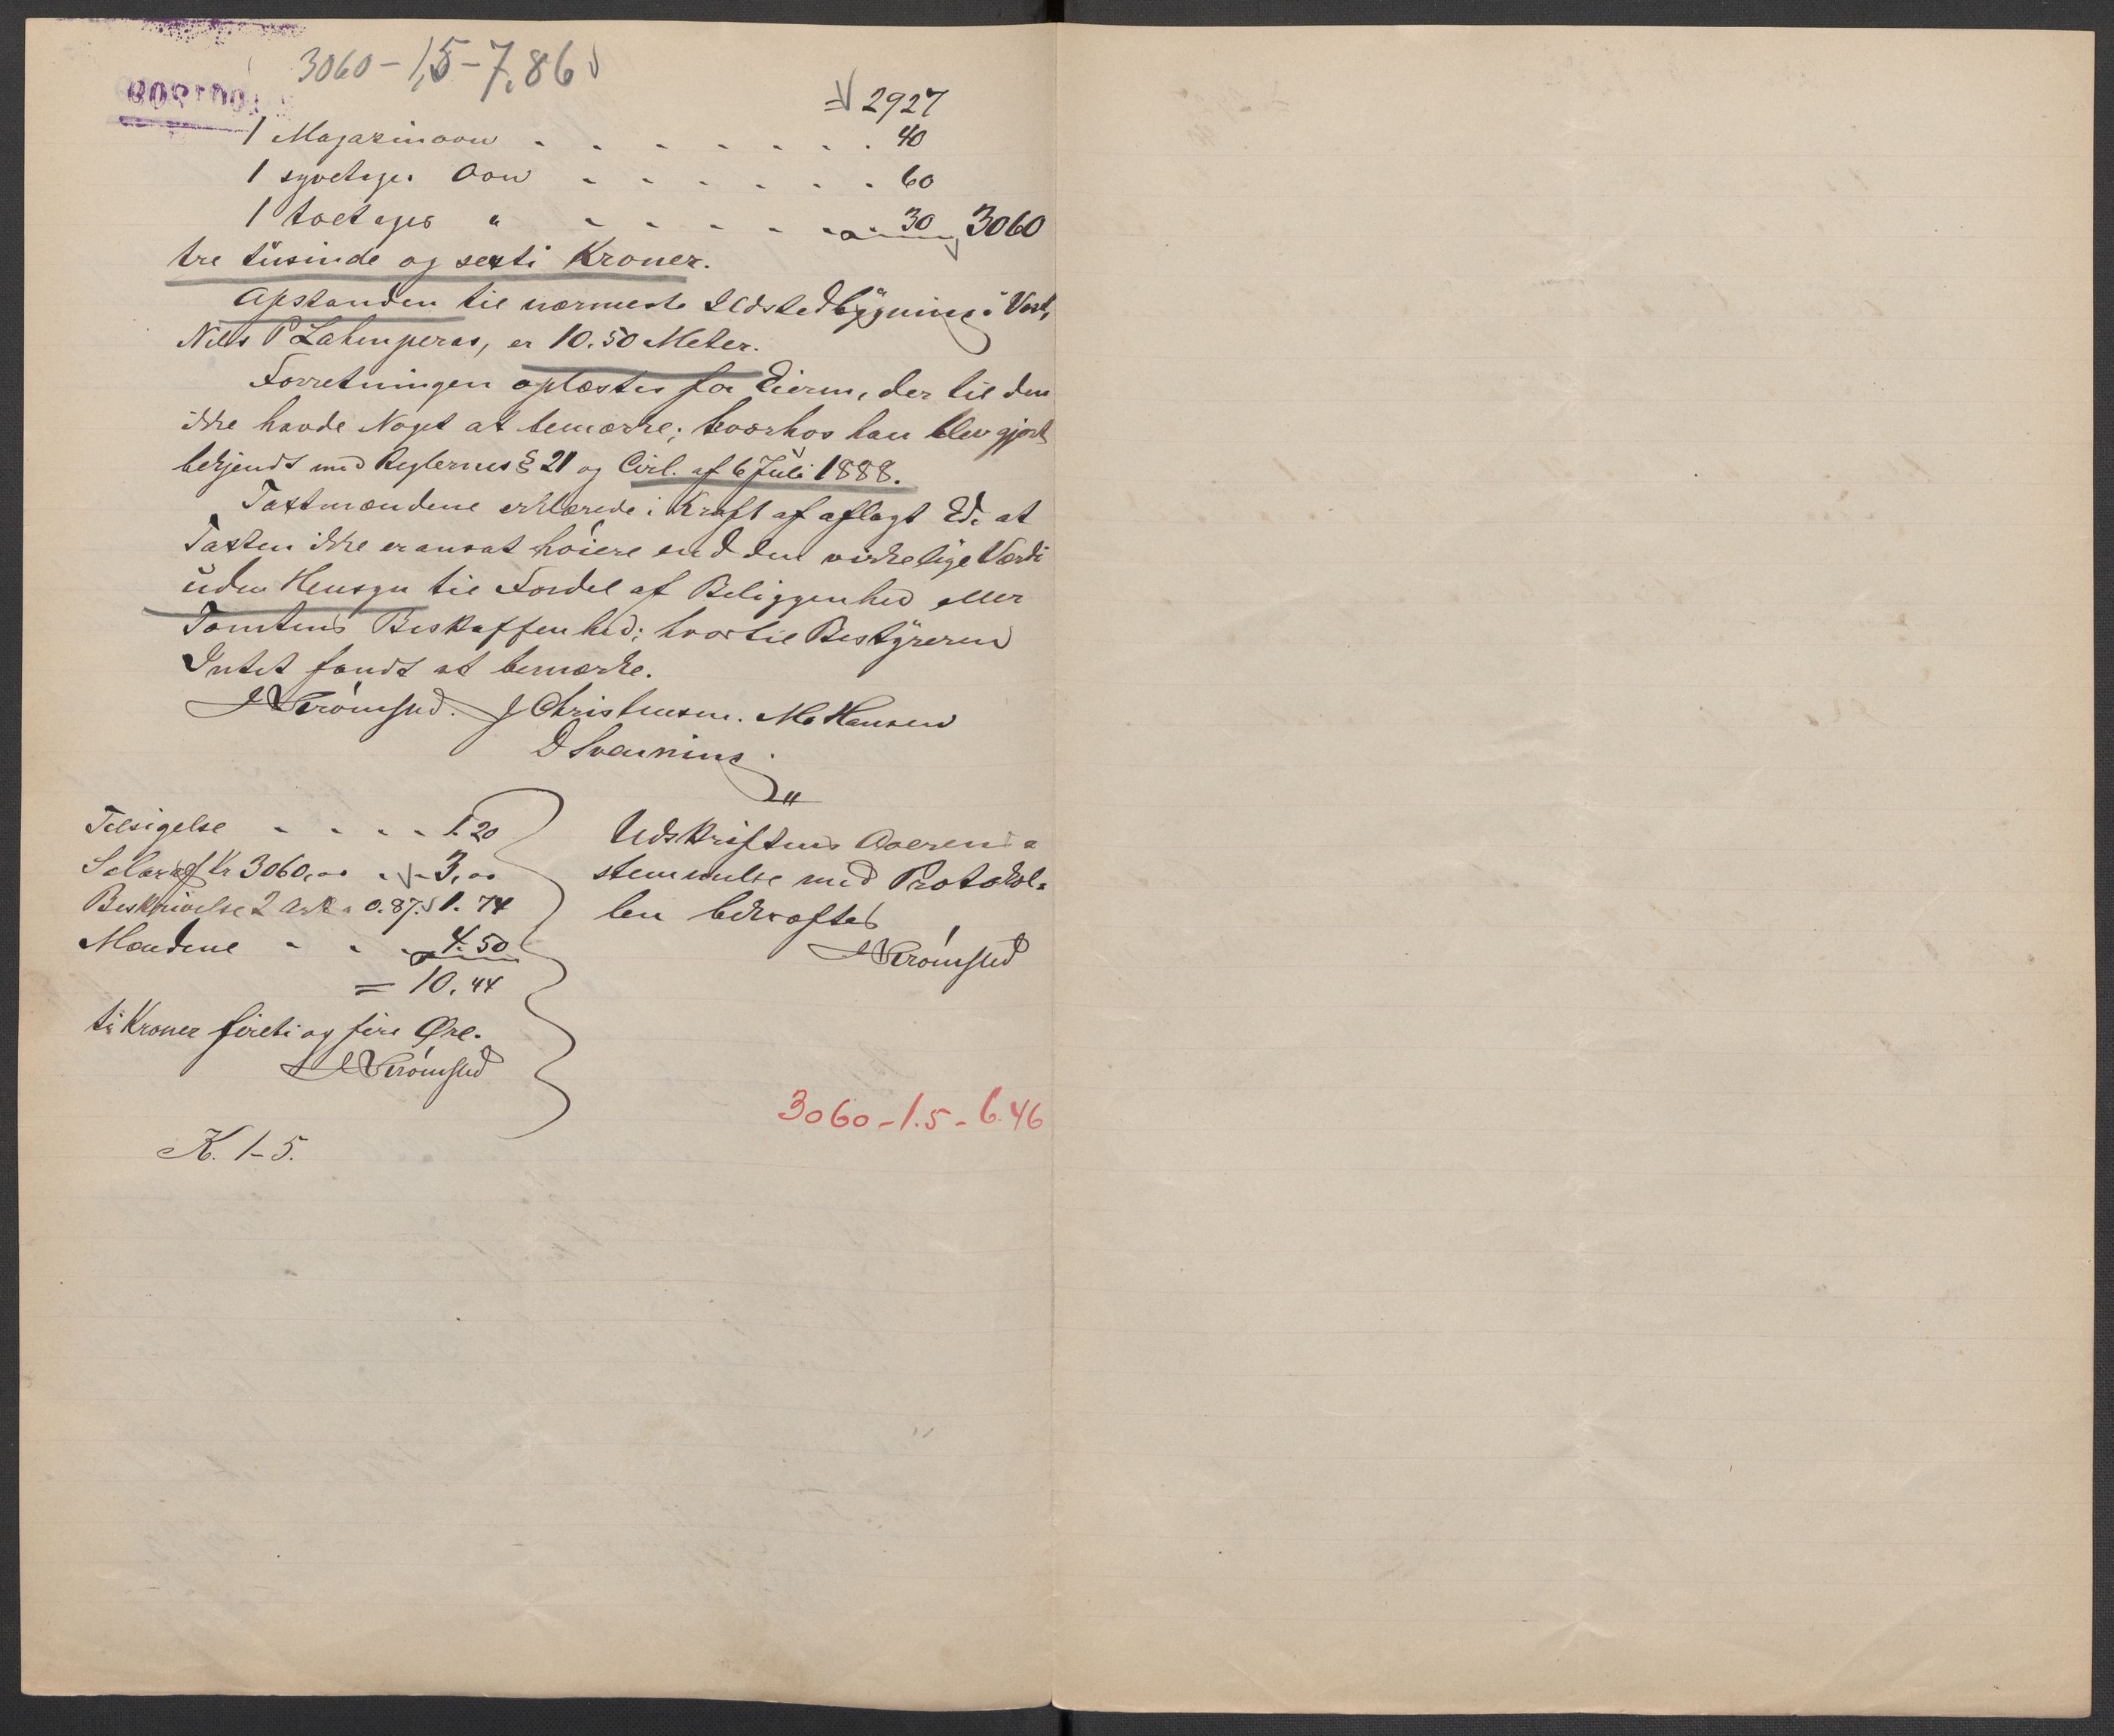 3060 – 1,5 – 7,86
= 2927
1 Magazinovn . . . . . . . . 40
1 syvetages Oovn . . . . . . 60
1 toetages " . . . . . . 30 3060
tre tusinde og sexti Kroner.
Afstanden til nærmeste Ildstedbygning i Vest,
Nils P, er 10.50 Meter.
Forretningen oplæstes for Eieren, der til den
ikke havde Noget at bemærke; hvorhos han blev gjort
bekjendt med Reglernes § 21 og Circl. af 6 Juli 1888.
Taxtmændene erklærede i Kraft af aflagt Ed, at
Taxten ikke er ansat høiere end den virkelige Værdi
uden Hensyn til Fordel af Beliggenhed eller
Tomtens Beskaffenhed; hvortil Bestyreren
Intet fandt at bemærke.
J Christensen. M Hansen
Tilsigelse . . . . 1.20
Salar af Kr 3060,00 . . 3,00
Beskrivelse 2 Ark a 0.87. 1.74
Mændene . . . 4.50
= 10.44
ti Kroner firti og fire Øre.
Udskriftens Overens=
stemmelse med Protokol=
len bekræftes
3060 – 1.5 – 6.46
K. 1–5.